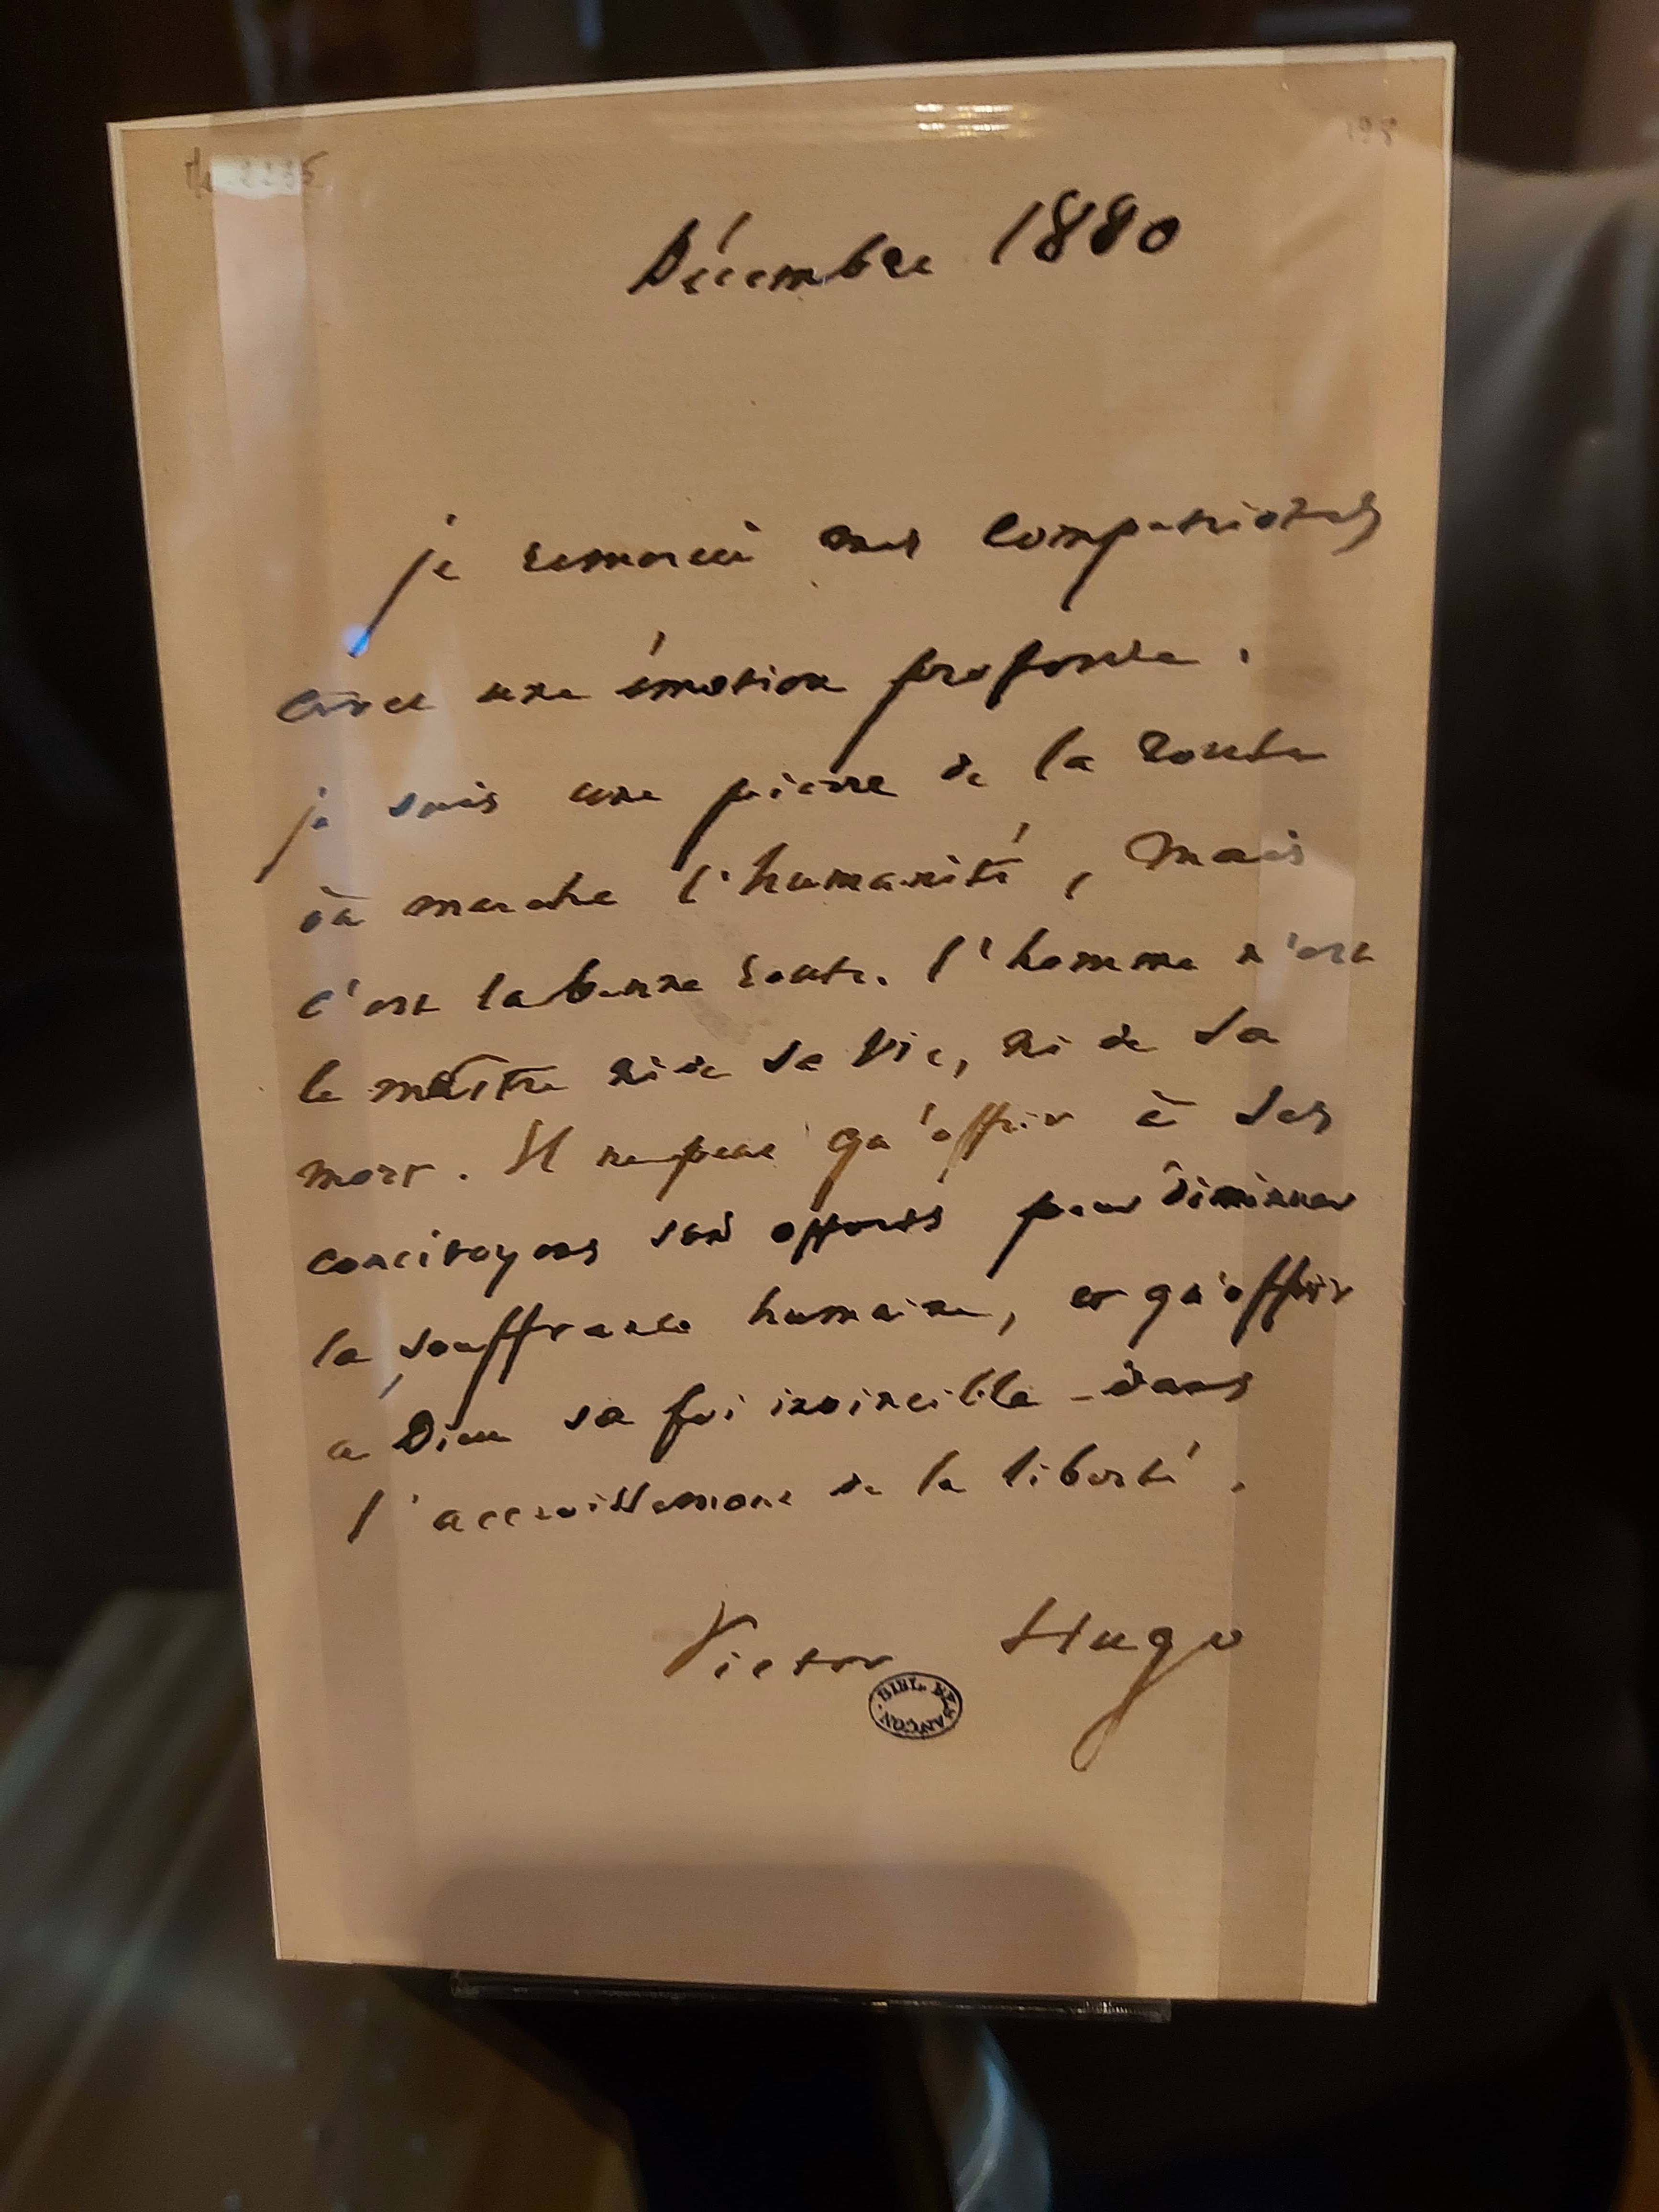 Ms 2235
198
Décembre 1880
je remercie mes compatriotes
avec une émotion profonde.
je suis une pierre de la route
où marche l'humanité, mais
c'est la bonne route. l'homme n'est
le maître ni de sa vie, ni de sa
mort. Il ne peut qu'offrir à ses
concitoyens ses efforts pour diminuer
la souffrance humaine, et qu'offrir
a Dieu sa foi invincible dans
l'accroissement de la liberté.
Victor Hugo
BIBL. BESANÇON